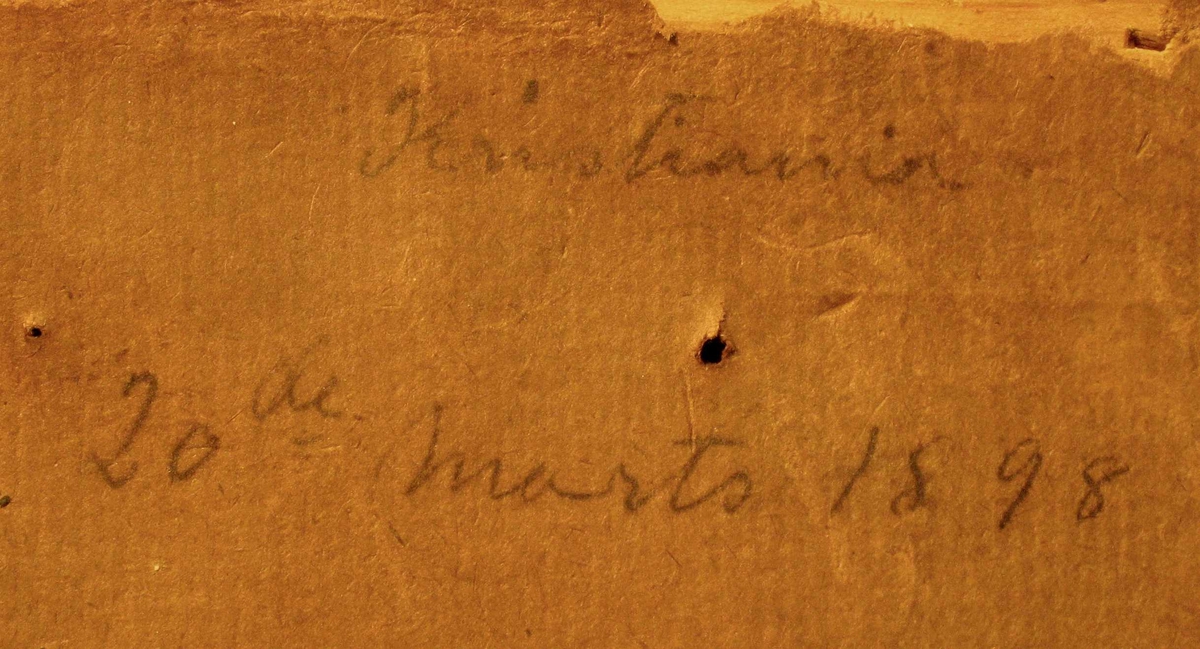 Kristiania
20de marts 1898